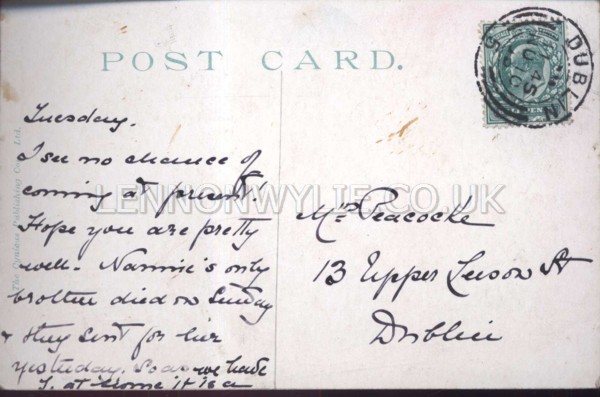 POST CARD.
Tuesday.
I see no chance of
coming at present!
Hope you are pretty
well. Nannie's only
brother died on Sunday
& they sent for her
yesterday. So as we have
at home it is a
Mrs Peacocke
13 Upper Leeson St
Dublin
DUBLIN
LENNONWYLIE.CO.UK